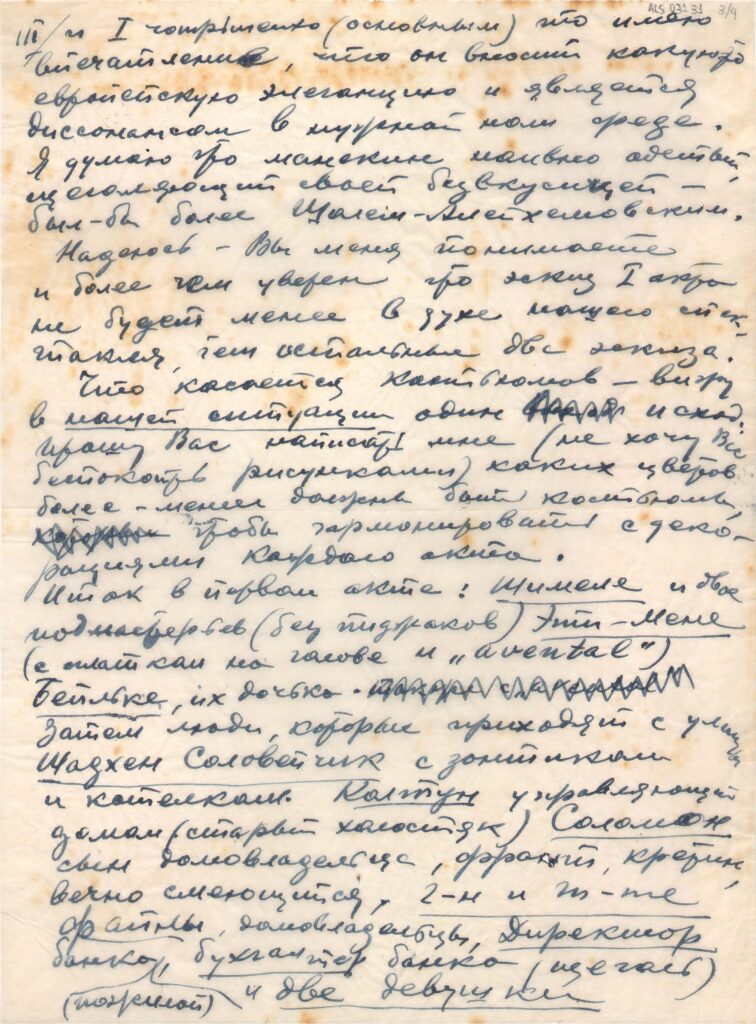 ALS 07131 3/9
III/ и I конкретно (основным) что имею
впечатление, что он вносит какую то
европейскую элеганцию и является
диссонансом в нужной нам среде.
Я думаю что манекин наивно одетый,
щеголяющий своей безвкусицей –
был-бы более Шолем-Алейхемовским.
Надеюсь – Вы меня понимаете
и более чем уверен что эскиз I акта
не будет менее в духе нашего спек-
такля, чем остальные два эскиза.
Что касается костюмов – вижу
в нашей ситуации один исход:
прошу Вас написать мне (не хочу Вас
беспокоить рисунками) каких цветов
более-менее должны быть костюмы,
чтобы гармонировать с деко-
рациями каждого акта.
Итак в первом акте: Шимеле и двое
подмастерьев (без пиджаков) Эти-Мене
(с платком на голове и „avental")
Бейльке, их дочька.
Затем люди, которые приходят с улицы
Шадхен Соловейчик с зонтиком
и котелком. Колтун управляющий
домом (старый холостяк) Соломон
сын домовладельца, франт, кретин,
вечно смеющийся, г-н и m-me
Файны, домовладельцы, Директор
банка, бухгалтер банка (щеголь)
(пожилой) и две девушки